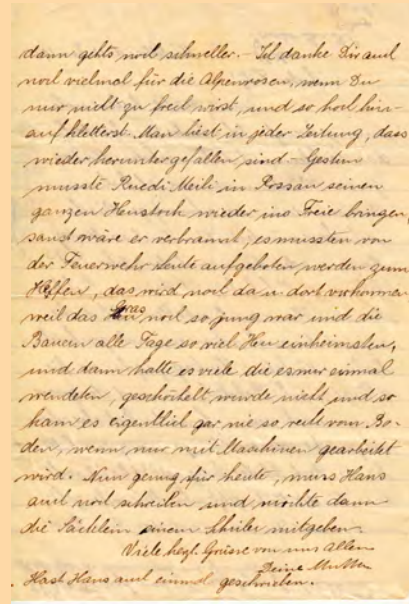 dann gehts noch schneller. – Ich danke Dir auch
noch vielmal für die Alpenrosen, wenn Du
nur nicht zu frech wirst, und so hoch hin-
auf kletterst. Man liest in jeder Zeitung, dass
wieder heruntergefallen sind – Gestern
musste Ruedi Meili in Rossau seinen
ganzen Heustock wieder ins Freie bringen,
sonst wäre er verbrannt; es mussten von
der Feuerwehr Leute aufgeboten werden zum
Helfen, das wird noch da u. dort vorkommen
weil das Gras noch so jung war und die
Bauern alle Tage so viel Heu einheimsten,
und dann hatte es viele die es nur einmal
wendeten, geschöchelt wurde nicht und so
kam es eigentlich gar nie so recht vom Bo-
den, wenn nur mit Maschinen gearbeitet
wird. Nun genug für heute, muss Hans
auch noch schreiben und möchte dann
die Säcklein einem Schüler mitgeben.
Viele hezl. Grüsse von uns allen
Deine Mutter
Hast Hans auch einmal geschrieben.